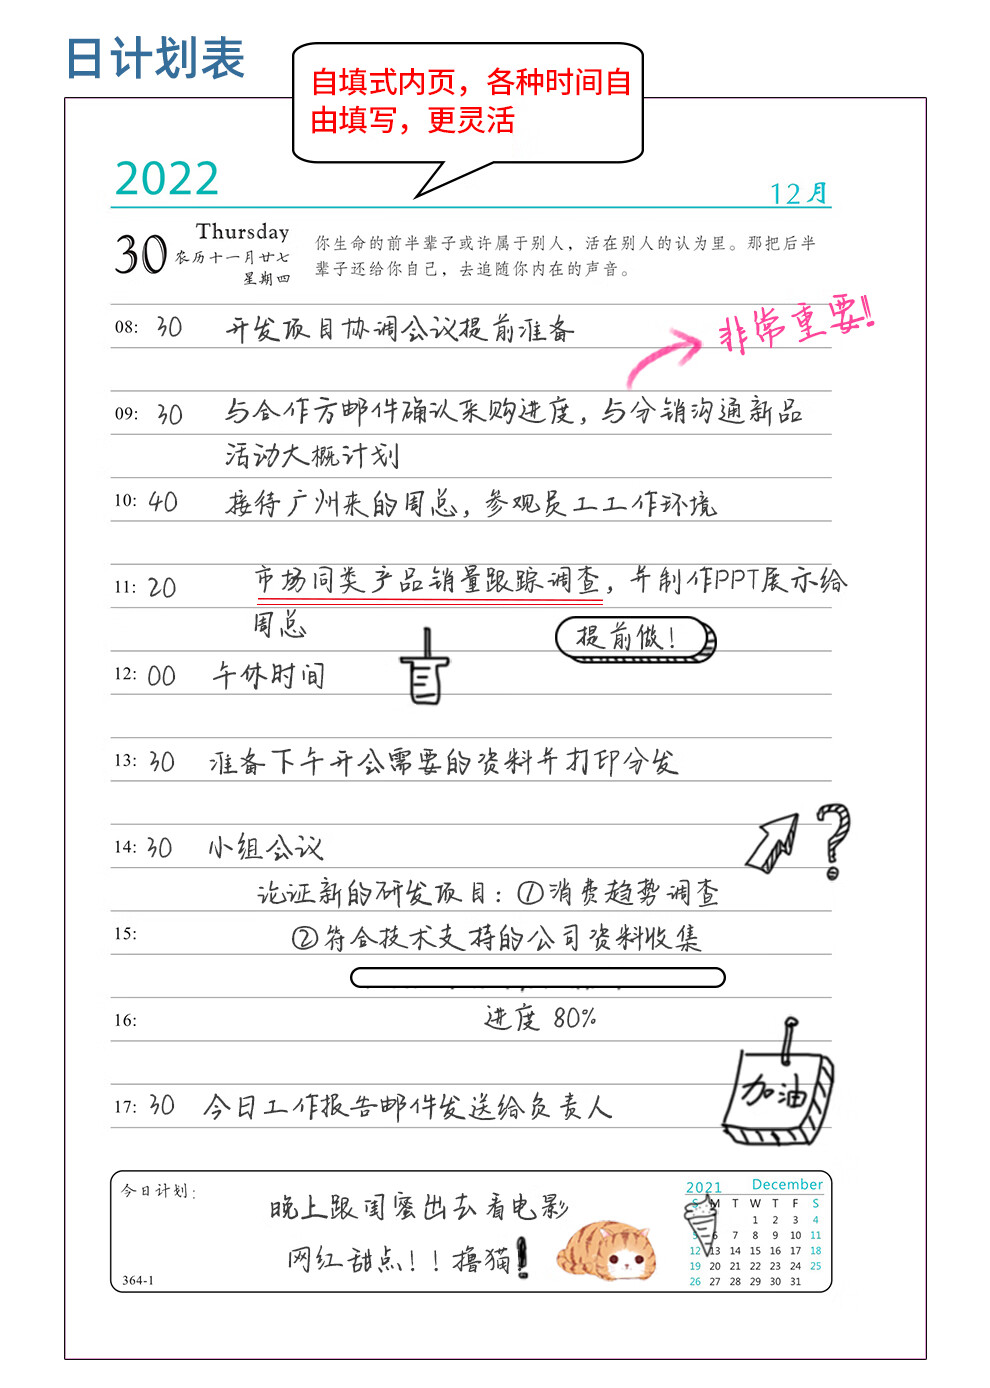 日计划表
自填式内页，各种时间自
由填写，更灵活
2022
12月
30 Thursday
农历十一月廿七
星期四
你生命的前半辈子或许属于别人，活在别人的认为里。那把后半
辈子还给你自己，去追随你内在的声音。
08: 30 开发项目协调会议提前准备
非常重要!!
09: 30 与合作方邮件确认采购进度，与分销沟通新品
活动大概计划
10: 40 接待广州来的周总，参观员工工作环境
11: 20 市场同类产品销量跟踪调查，并制作PPT展示给
周总
提前做！
12: 00 午休时间
13: 30 准备下午开会需要的资料并打印分发
?
14: 30 小组会议
论证新的研发项目：①消费趋势调查
15: ②符合技术支持的公司资料收集
16: 进度 80%
加油
17: 30 今日工作报告邮件发送给负责人
今日计划：
晚上跟闺蜜出去看电影
网红甜点！！撸猫!
364-1
2021 December
S M T W T F S
1 2 3 4
5 6 7 8 9 10 11
12 13 14 15 16 17 18
19 20 21 22 23 24 25
26 27 28 29 30 31